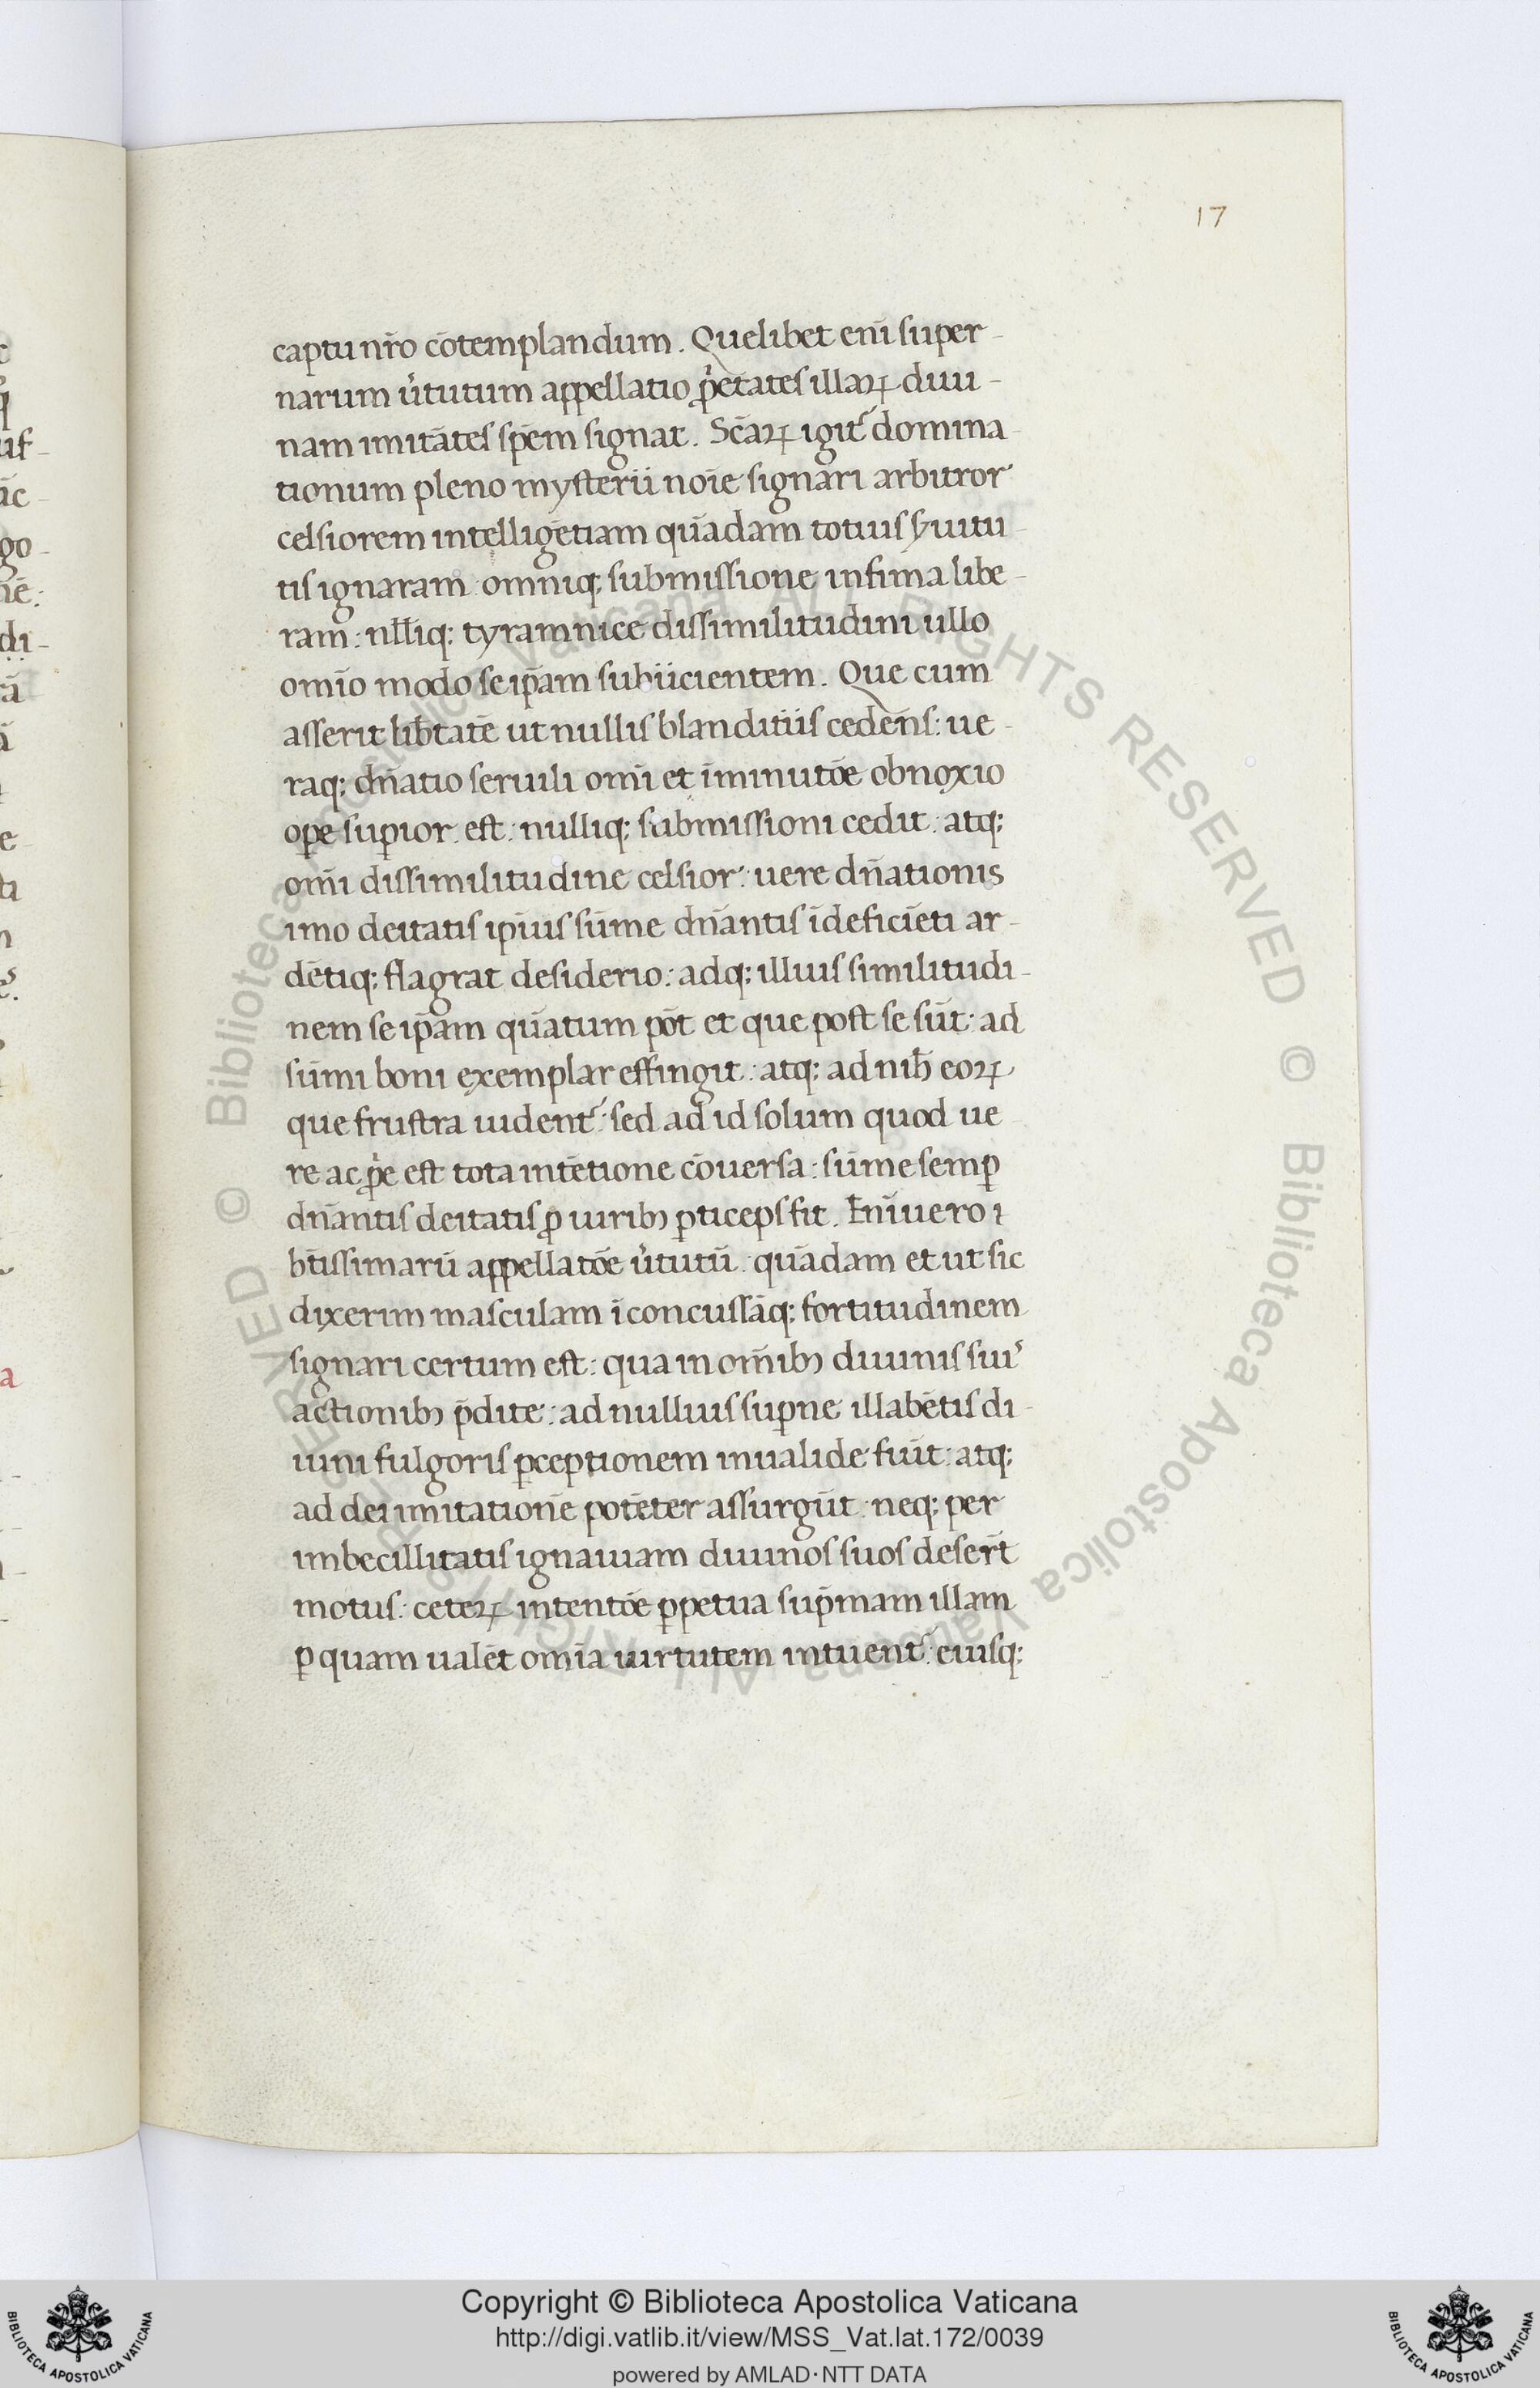 17
captu nr̄o cōtemplandum. Quelibet enī super-
narum ůtutum appellatio ꝓ̍etates illaꝝ diui-
nam imitātes spēm signat. Scāꝝ igit᷑ domina
tionum pleno mysterii noīe signari arbitror
celsiorem intelligētiam quādam totius ẜuitu-
tis ignaram: omniq; submissione infima libe-
ram: nll̄iq: tyramnice dissimilitudini ullo
omīo modo se ip̄am subiicientem. Que cum
asserit lib̄tatē ut nullis blanditiis cedēns: ue-
raq: dn̄atio seruili omī et īminutōe obnoxio
oꝑe suꝑior. est: nulliq: submissioni cedit: atq:
omī dissimilitudine celsior: uere dn̄ationis
imo deitatis ip̄ius sūme dn̄antis īdeficiēti ar-
dētiq: flagrat desiderio: adq: illius similitudi-
nem se ip̄am quātum pōt et que post se sūt: ad
sūmi boni exemplar effingit: atq: ad nih̄ eoꝝ
que frustra uident᷑: sed ad id solum quod ue
re ac ꝓ̍e est tota intētione cōuersa: sūme semꝑ
dn̄antis deitatis ꝓ uiribꝫ ꝑticeps fit. Enīuero ı
bt̄issimarū appellatōe ůtutū: quādam et ut sic
dixerim masculam īconcussāq: fortitudinem
signari certum est: qua in om̄ibꝫ diuinis sui᷒
actionibꝫ p̄dite: ad nullius suꝑne illabētis di-
uini fulgoris ꝑceptionem inualide fūit: atq:
ad dei imitationē potēter assurgūt: neq: per
imbecillitatis ignauiam diuinos suos deserт̄
motus: ceteꝝ intentōe ꝑpetua sup̄mam illam
ꝑ quam ualēt omīa uirtutem intuent᷑: eiusq:
© Biblioteca Apostolica Vaticana ALL RIGHTS RESERVED © Biblioteca Apostolica Vaticana ALL RIGHTS RESERVED
Copyright © Biblioteca Apostolica Vaticana
http://digi.vatlib.it/view/MSS_Vat.lat.172/0039
powered by AMLAD·NTT DATA
BIBLIOTECA APOSTOLICA VATICANA
BIBLIOTECA APOSTOLICA VATICANA